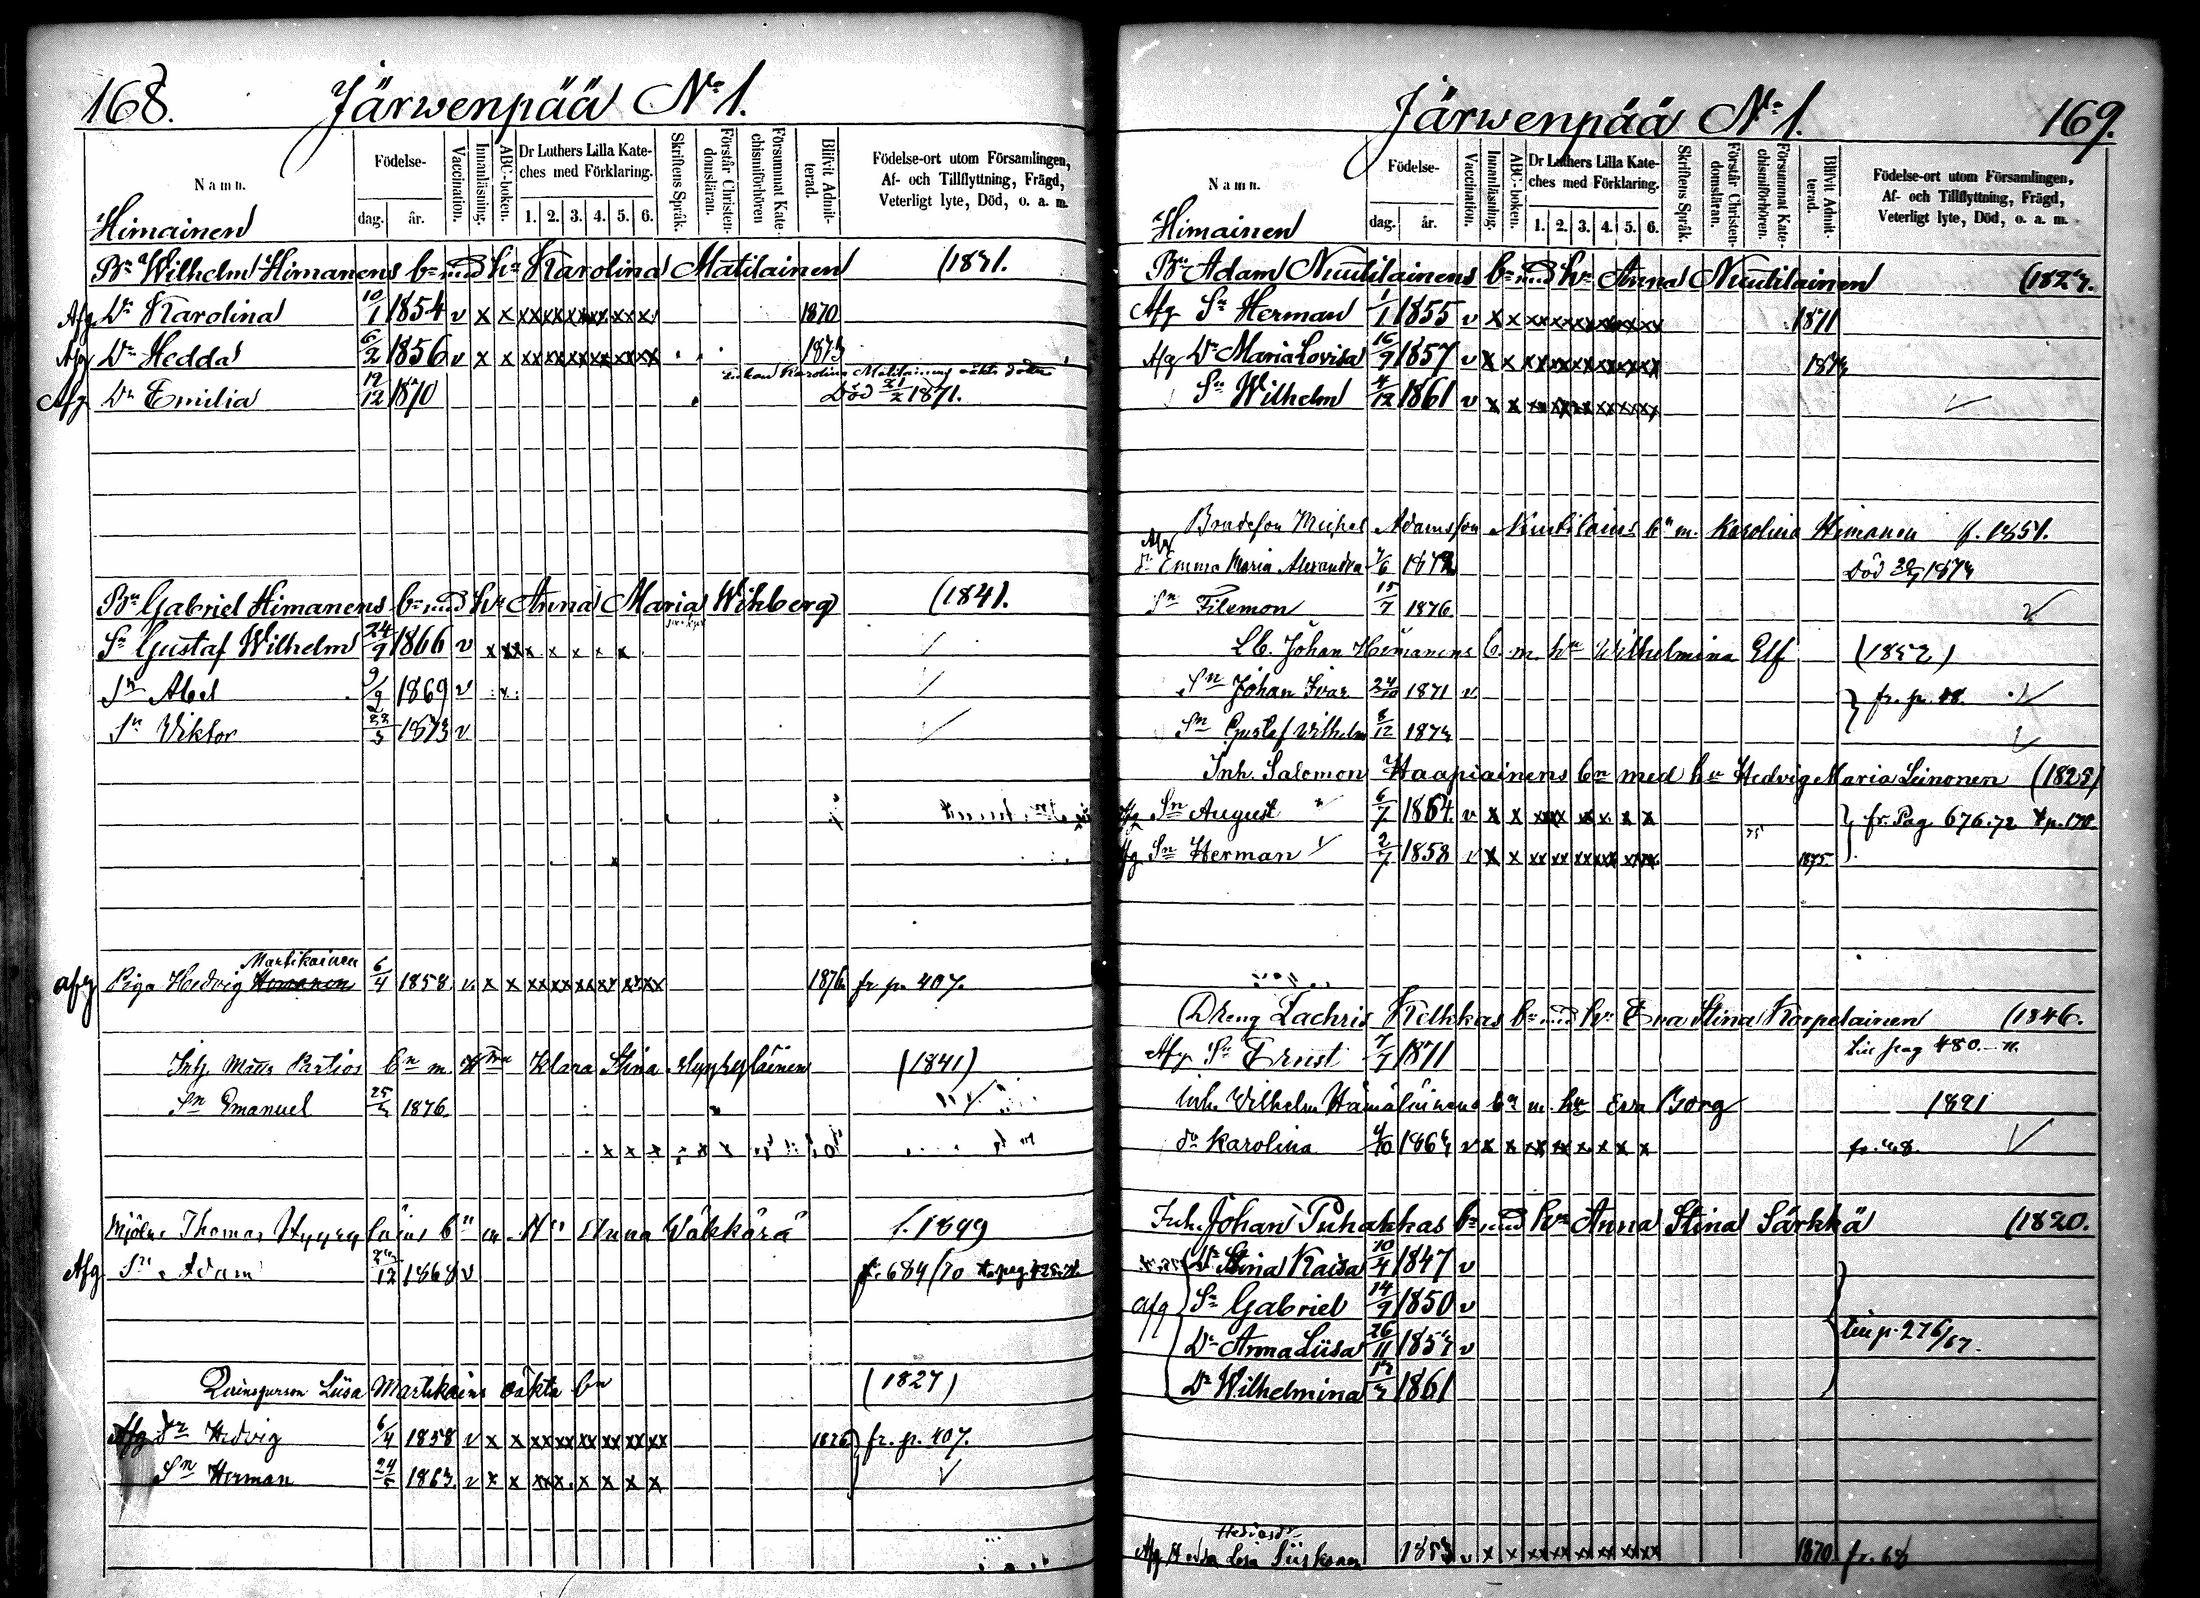 168.
Järwenpää No 1.
Namn.
Födelse-
dag.
år.
Vaccination.
Innanläsning.
ABC-boken.
Dr Luthers Lilla Kateches med Förklaring.
1. 2. 3. 4. 5. 6.
Skriftens Språk.
Förstår Christendomsläran.
Försummat Katechismiförhören
Blifvit Admitterad.
Födelse-ort utom Församlingen,
Af- och Tillflyttning, Frägd,
Veterligt lyte, Död, o. a. m.
Himainen
Bn Wilhelm Himanens bn med hu Karolina Matilainen (1831.
Afg Dr Karolina 10/1 1854 v x x xx xx xx xx xx x 1870
Afg Dr Hedda 6/2 1856 v x x xx xx xx xx xx xx 1873
Enkan Karolina Matilainens oäkta dotter
Afg Dr Emilia 19/12 1870 Död 21/2 1871.
Bn Gabriel Himanens bn med hu Anna Maria Wihberg (1841.
Sn Gustaf Wilhelm 24/9 1866 v x xx x x x x x
Sn Abel 9/9 1869 v x
Sn Viktor 23/3 1873 v
Martikainen
afg Piga Hedvig 6/4 1858 v x x xx xx xx xx xx xx 1876 fr p. 407.
Inh Matts Partios bn m Hru Klara Stina Hyyryläinen (1841)
Sn Emanuel 25/3 1876.
Mjöln. Thomas Hyyryläins bn m Hu Anna Wäkkärä f. 1849
Afg Sn Adam 12 1868 v fr. 684/70
Qvinsperson Liisa Martikains oäkta bn (1827)
Afg dr Hedvig 6/4 1858 v x x xx xx xx xx xx xx 1876 fr. p. 407.
Sn Herman 24/5 1863. v x x xx x x x x x
Järwenpää No 1.
169.
Namn.
Födelse-
dag.
år.
Vaccination.
Innanläsning.
ABC-boken.
Dr Luthers Lilla Kateches med Förklaring.
1. 2. 3. 4. 5. 6.
Skriftens Språk.
Förstår Christendomsläran.
Försummat Katechismiförhören.
Blifvit Admitterad.
Födelse-ort utom Församlingen,
Af- och Tillflyttning, Frägd,
Veterligt lyte, Död, o. a. m.
Himainen
Bn Adam Nuutilainens bn med hu Anna Nuutilainen (1827.
Afg Sn Herman 1/1 1855 v x x xx xx xx xx xx xx 1871
Afg Dr Maria Lovisa 16/9 1857 v x x xx xx xx xx xx xx 1873
Sn Wilhelm 4/12 1861 v x x xx xx xx xx xx xx
Bondeson Michel Adamsson Nuutilains bn m. Karolina Himanen f. 1851.
Afg
dr Emma Maria Alexandra 7/6 1872 Död 1873
Sn Filemon 15/7 1876.
Lb. Johan Himanens b. m. hu Wilhelmina Elf (1852)
Sn Johan Ivar 24/10 1871 v fr. p. 48.
Sn Gustaf Wilhelm 8/12 1873
Inh. Salomon Haapiainens bn med hu Hedvig Maria Leinonen (1825)
Afg Sn August 6/7 1864. v x x xx x x x x x fr. Pag 676.72
Afg Sn Herman 2/7 1858 v x x xx xx xx xx xx xx 1875.
Dreng Zachris Kelkkas bn med hu Eva Stina Korpelainen (1846.
Afg Sn Ernst 7/7 1871 till pag 480.
inh. Wilhelm Hämäläinens bn m. hu Eva Borg 1821
dr Karolina 4/10 1863 v x x xx xx x x x x fr. 48.
Inh. Johan Puhakkas bn med hu Anna Stina Särkkä (1820.
Dr Stina Kaisa 10/4 1847 v
afg Sn Gabriel 14/9 1850 v
Dr Anna Liisa 26/11 1853 v till p. 276/67.
Dr Wilhelmina 1861
Afg 1853 v x x xx xx xx xx xx xx 1870 fr. 68